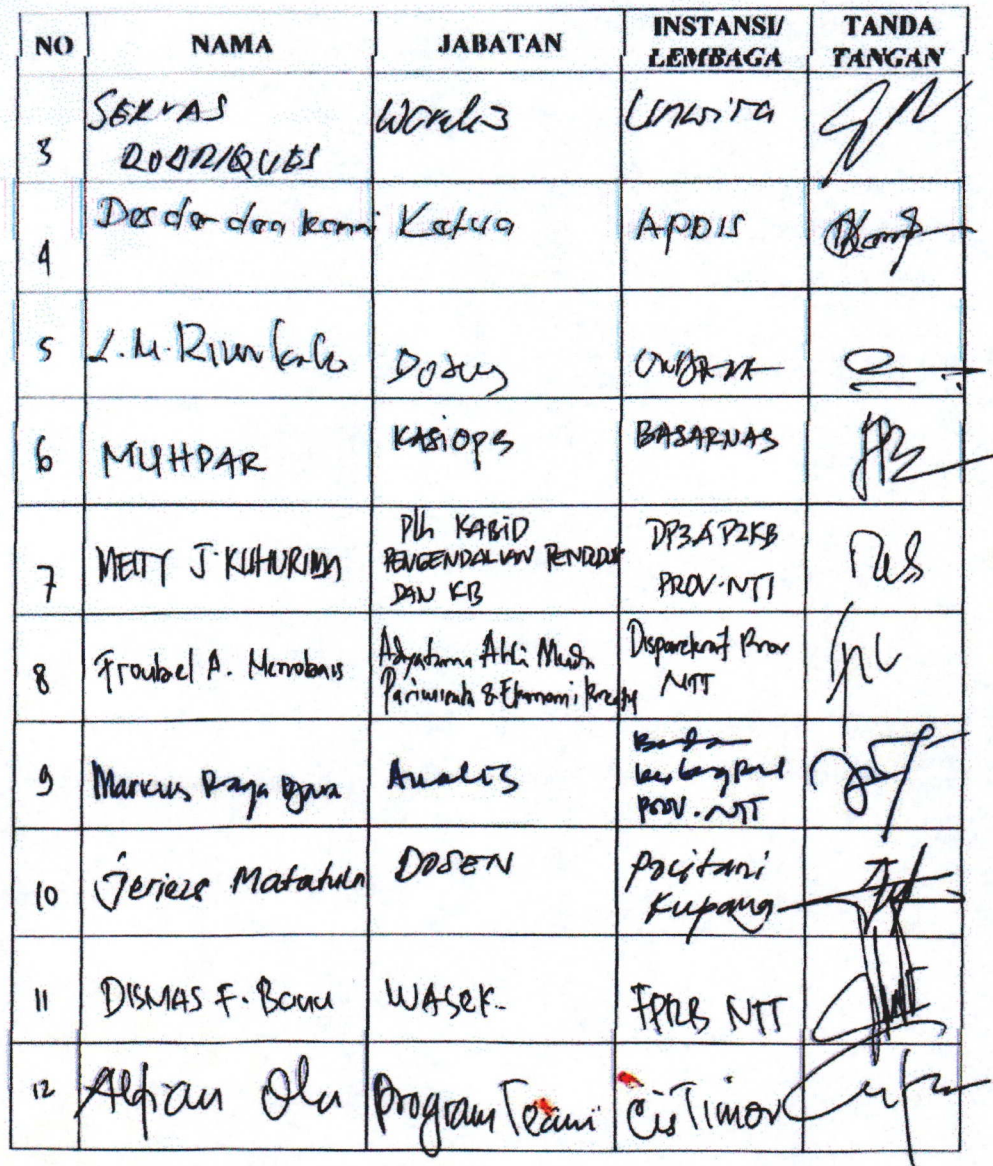 NO NAMA JABATAN INSTANSI/ LEMBAGA TANDA TANGAN
3 SERVAS RODRIQUES Unwira
4 Desderdea kanni Ketua APDIS
5 L.M. Dosen
6 MUHDAR KASIOPS BASARNAS
7 MEITY J. KUHURIMA Plh KABID PENGENDALIAN PENDUDUK DAN KB DP3AP2KB PROV. NTT
8 Froubel A. Adyatama Ahli Muda Pariwisata & Ekonomi Kreatif Disparekraf Prov NTT
9 Markus Raga Djara Analis Badan kesbangpol PROV. NTT
10 Jeriels Matatula DOSEN Politani Kupang
11 DISMAS F. Banu WASEK. FPRB NTT
12 Alfrian Olu Program Team Cis Timor